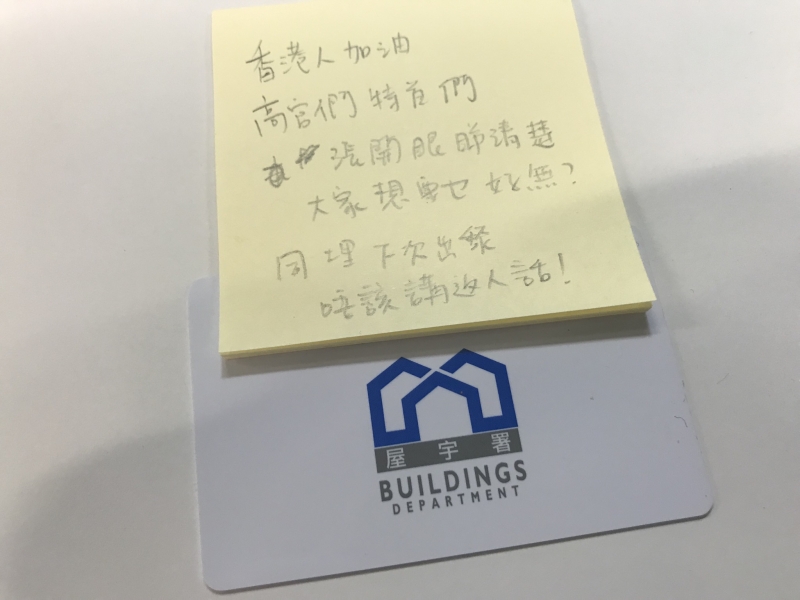 香港人加油
高官們特首們
張開眼睇清楚
大家想要乜好無?
同埋下次出嚟
唔該講返人話!
屋宇署
BUILDINGS
DEPARTMENT